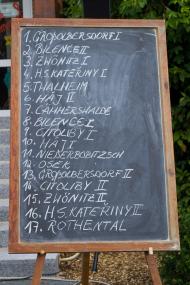 1. GROßOLBERSDORF I
2. BILENCE II
3. ZWÖNITZ I
4. H.S. KATEŘINY I
5. THALHEIM
6. HÁJ II
7. LAMMERSHALDE
8. BILENCE I
9. CITOLIBY I
10. HÁJ I
11. NIEDERBOBRITZSCH
12. OSEK
13. GROßOLBERSDORF II
14. CITOLIBY II
15. ZWÖNITZ II
16. H.S. KATEŘINY II
17. ROTHENTAL